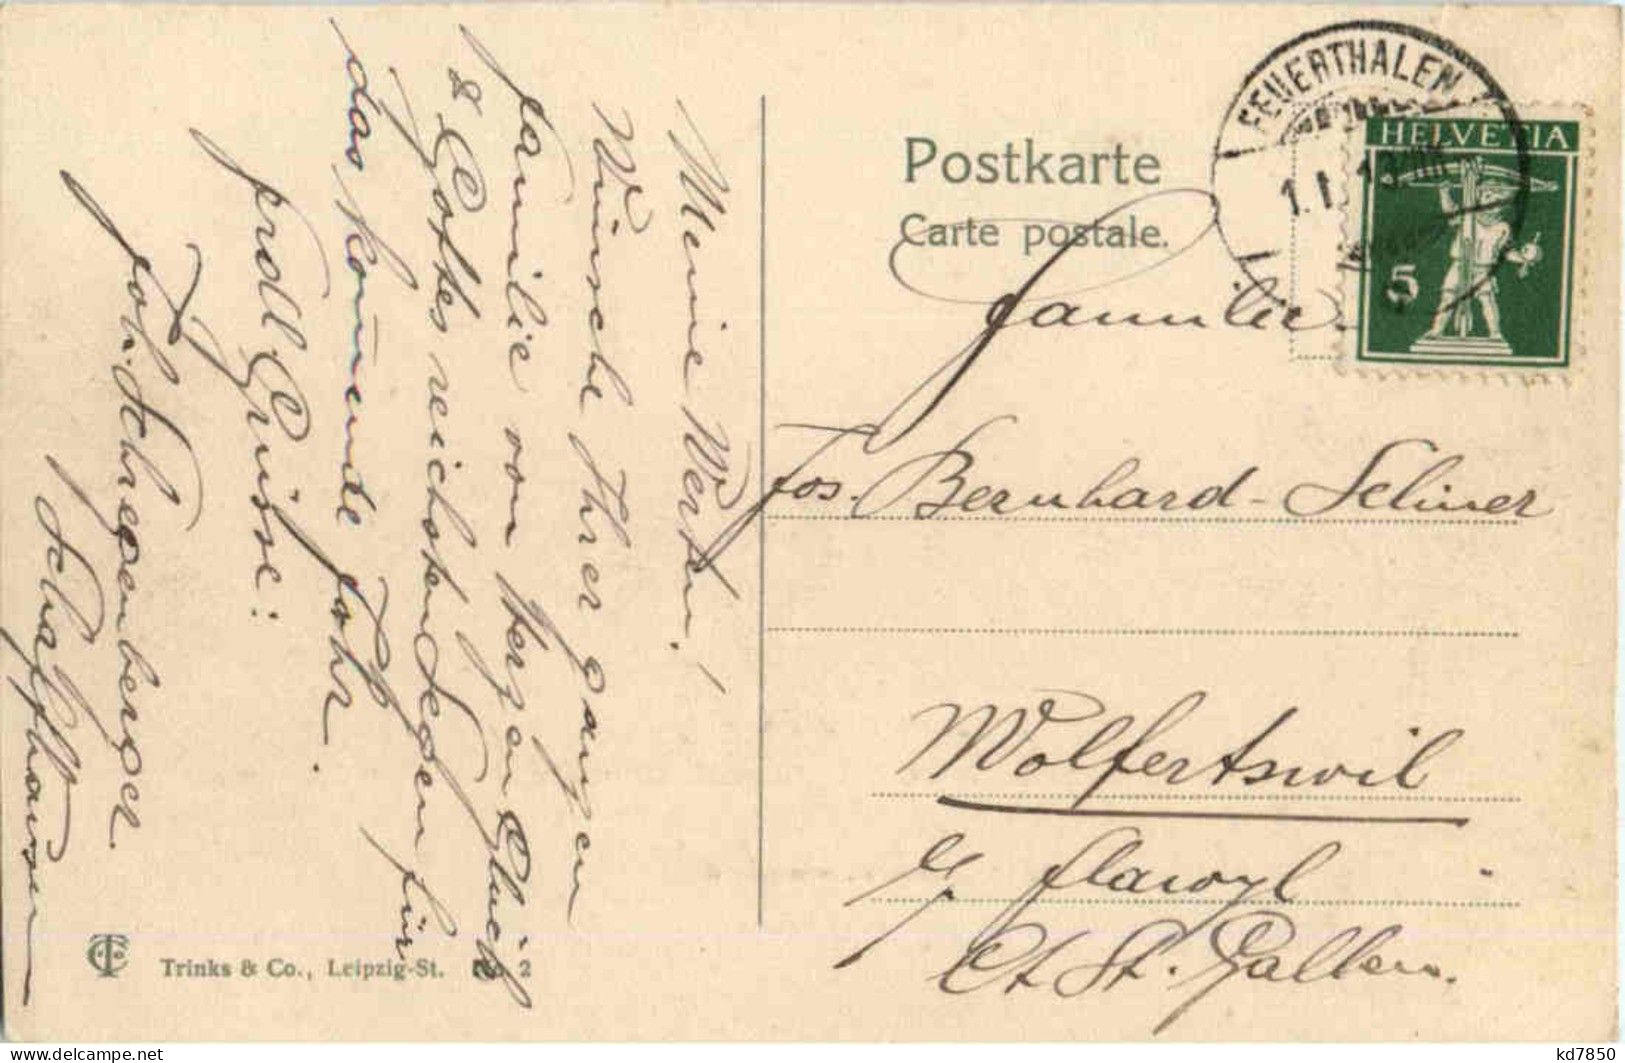 Meine Werten!
Wünsche Ihrer ganzen
Familie von Herzen Glück
& Gottes reichsten Segen für
das kommende Jahr.
frdl. Grüsse:
Joh. Schrepenberger
Schaffhausen
Postkarte
Carte postale.
FEUERTHALEN
HELVETIA
5
Familie
Jos. Bernhard-
Wolfertswil
Flawyl
Ct St. Gallen.
Trinks & Co., Leipzig-St. No. 2
kd7850